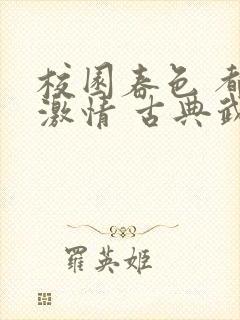 校园春色 都
激情 古典武
羅英姬